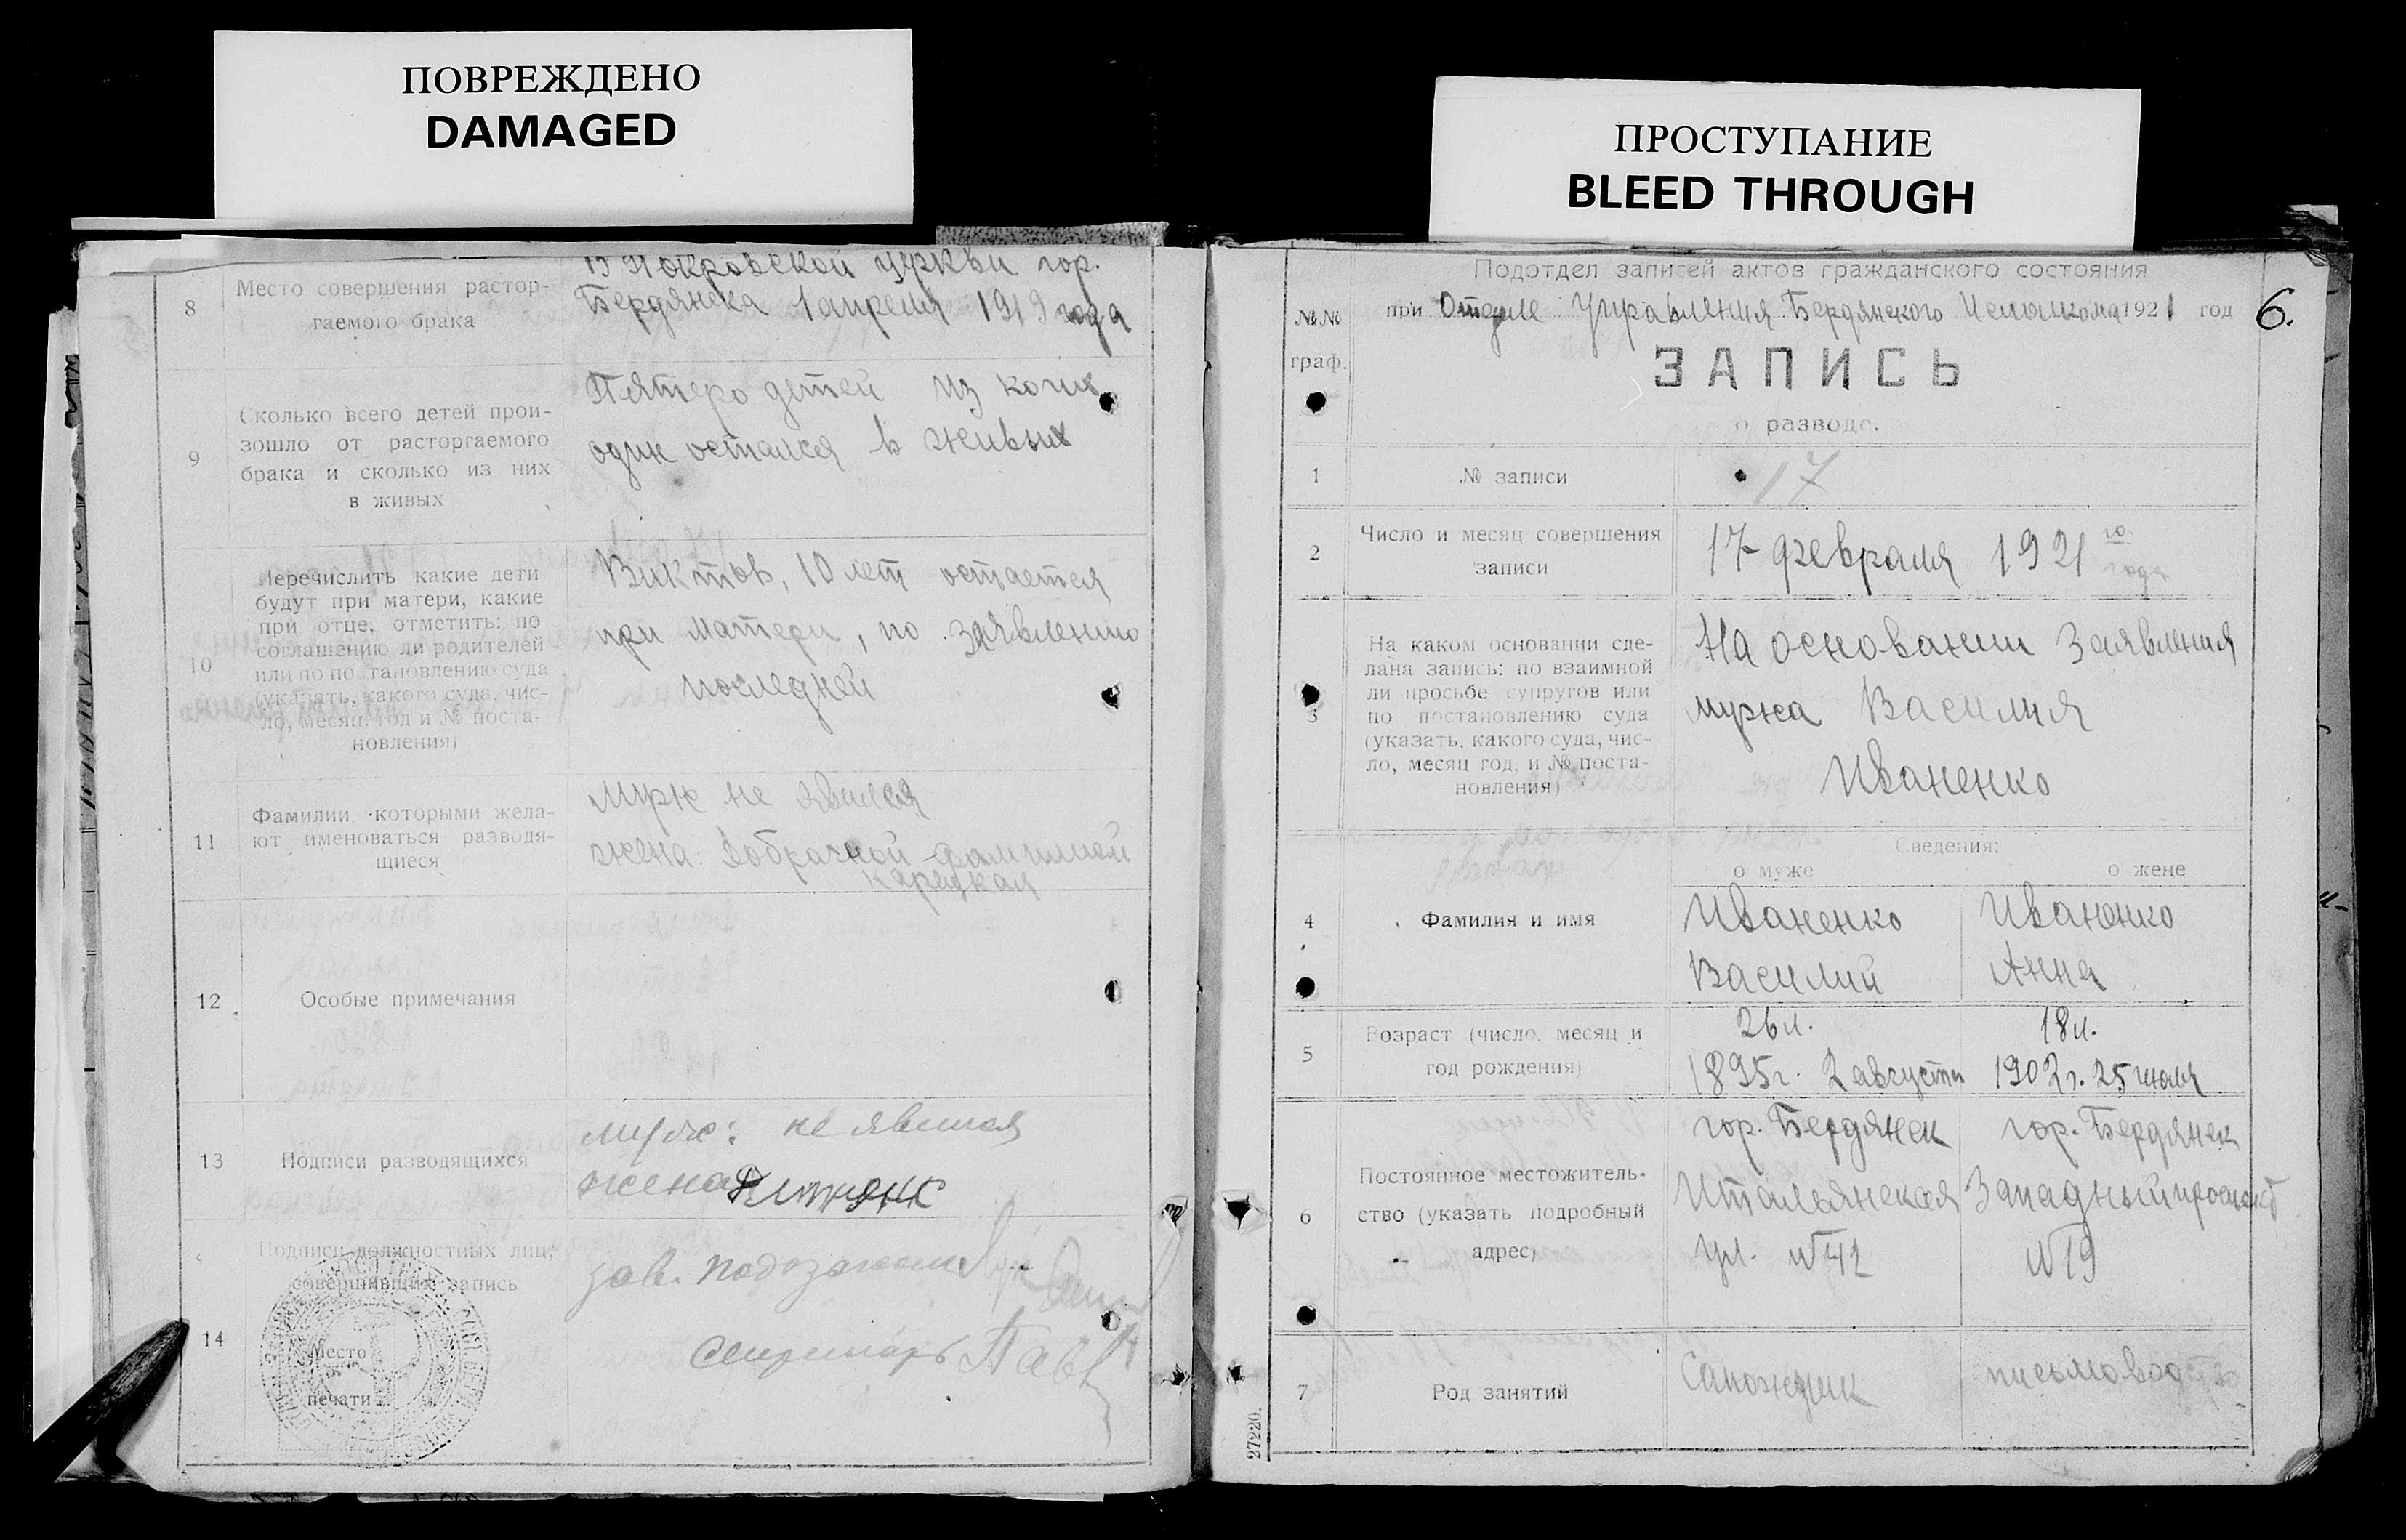 ПОВРЕЖДЕНО
DAMAGED
ПРОСТУПАНИЕ
BLEED THROUGH
8
Место совершения растор-
гаемого брака
В Покровской церкви гор.
Бердянска 1 апреля 1919 года
9
Сколько всего детей прои-
зошло от расторгаемого
брака и сколько из них
в живых
Пятеро детей из коих
один остался в живых
10
Перечислить какие дети
будут при матери, какие
при отце, отметить: по
соглашению ли родителей
или по постановлению суда
(указать, какого суда, чис-
ло, месяц, год и № поста-
новления)
Виктор, 10 лет остается
при матери, по заявлению
последней
11
Фамилии, которыми жела-
ют именоваться разводя-
щиеся
Муж не явился
жена: добрачной фамилией
Карецкая
12
Особые примечания
13
Подписи разводящихся
муж: не явился
жена
14
Подписи должностных лиц,
совершивших запись
Место
печати
зав.
секретарь
Подотдел записей актов гражданского состояния
при Отделе Управления Бердянского Исполкома 1921 год
6.
№№
граф.
ЗАПИСЬ
о разводе.
1
№ записи
17
2
Число и месяц совершения
записи
17 февраля 1921 го
года
3
На каком основании сде-
лана запись: по взаимной
ли просьбе супругов или
по постановлению суда
(указать, какого суда, чис-
ло, месяц год, и № поста-
новления)
На основании Заявления
мужа Василия
Иваненко
Сведения:
о муже
о жене
4
Фамилия и имя
Иваненко
Василий
Иваненко
Анна
5
Возраст (число, месяц и
год рождения)
26 л.
1895 г. 2 августа
18 л.
1902 г. 25 июля
6
Постоянное местожитель-
ство (указать подробный
адрес)
гор. Бердянск
Итальянская
ул. №42
гор. Бердянск
Западный проспект
№19
7
Род занятий
Сапожник
письмоводство
27220.